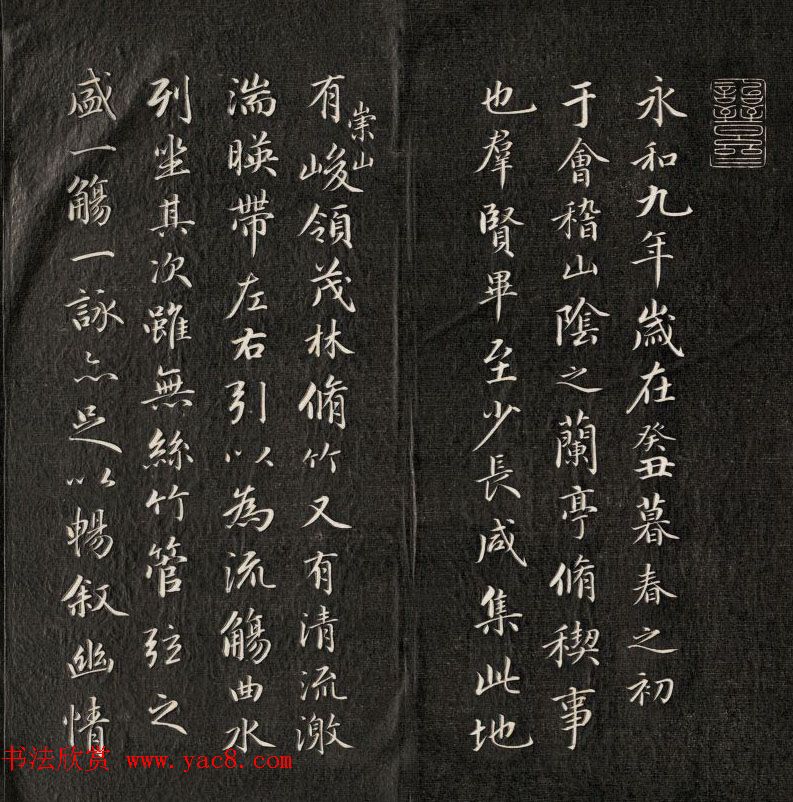 永和九年歲在癸丑暮春之初
于會稽山陰之蘭亭脩稧事
也羣賢畢至少長咸集此地
有崇山峻領茂林脩竹又有清流激
湍暎帶左右引以為流觴曲水
列坐其次雖無絲竹管弦之
盛一觴一詠亦足以暢叙幽情
书法欣赏 www.yac8.com